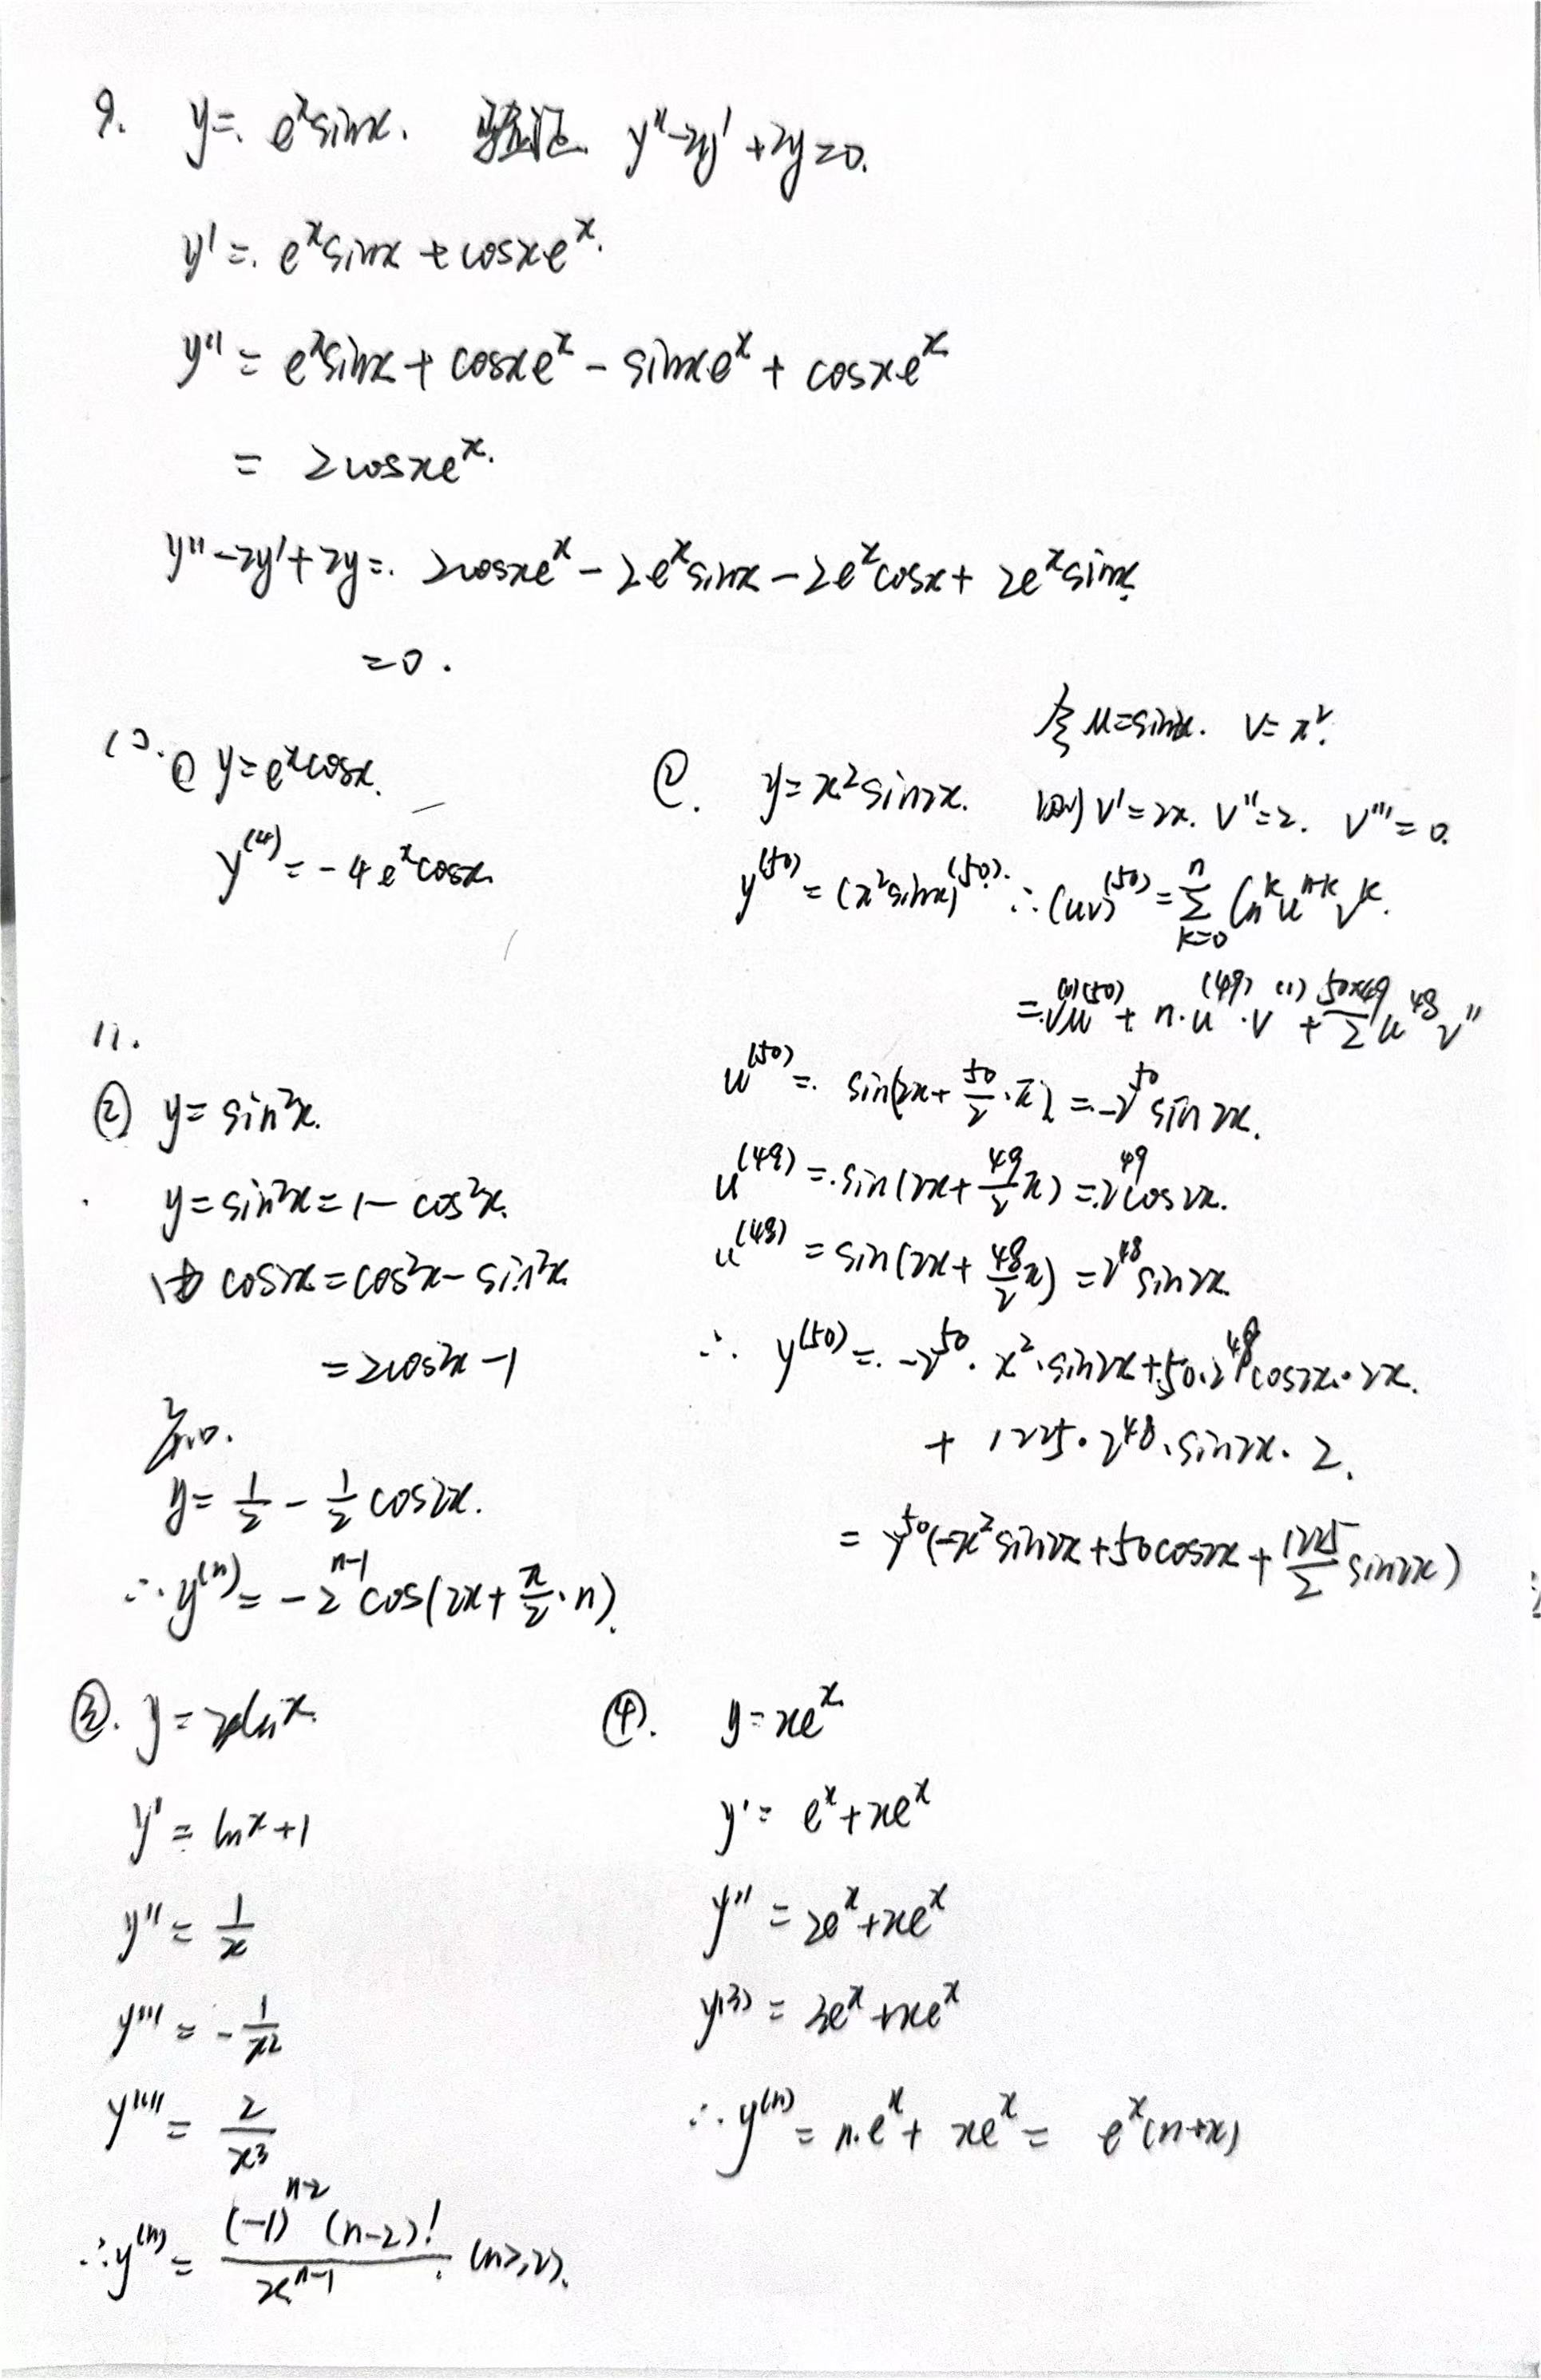 9. y = e^x sinx. 验证 y''-2y'+2y=0.
y' = e^x sinx + cosxe^x.
y'' = e^x sinx + cosxe^x - sinxe^x + cosxe^x
= 2cosxe^x.
y''-2y'+2y = 2cosxe^x - 2e^x sinx - 2e^x cosx + 2e^x sinx.
=0.
10. ① y=e^x cosx.
y^(4) = -4e^x cosx.
令 u=sin2x. v=x².
②. y=x² sin2x. 则 v'=2x. v''=2. v'''=0.
y^(50) = (x² sin2x)^(50). ∴(uv)^(50) = Σ_{k=0}^{n} C_n^k u^{n-k} v^k.
= v^(0) u^(50) + n·u^(49)·v^(1) + \frac{50×49}{2} u^48 v''
u^(50) = sin(2x+\frac{50}{2}·π) = -2^50 sin2x.
u^(49) = sin(2x+\frac{49}{2}π) = 2^49 cos2x.
u^(48) = sin(2x+\frac{48}{2}π) = 2^48 sin2x.
∴ y^(50) = -2^50·x²·sin2x+50·2^49 cos2x·2x.
+ 1225·2^48·sin2x·2.
= 2^50(-x² sin2x+50cos2x+\frac{1225}{2} sin2x)
11.
② y= sin²x.
y=sin²x=1-cos²x.
由 cos2x=cos²x-sin²x
=2cos²x-1
知.
y= \frac{1}{2} - \frac{1}{2} cos2x.
∴y^(n) = -2^{n-1} cos(2x+\frac{π}{2}·n).
③. y=xlnx.
y' = lnx+1
y'' = \frac{1}{x}
y''' = -\frac{1}{x²}
y'''' = \frac{2}{x³}
∴y^(n) = \frac{(-1)^{n-2} (n-2)!}{x^{n-1}} (n≥2).
④. y=xe^x
y' = e^x+xe^x
y'' = 2e^x+xe^x
y^(3) = 3e^x+xe^x
∴y^(n) = n·e^x + xe^x = e^x(n+x)